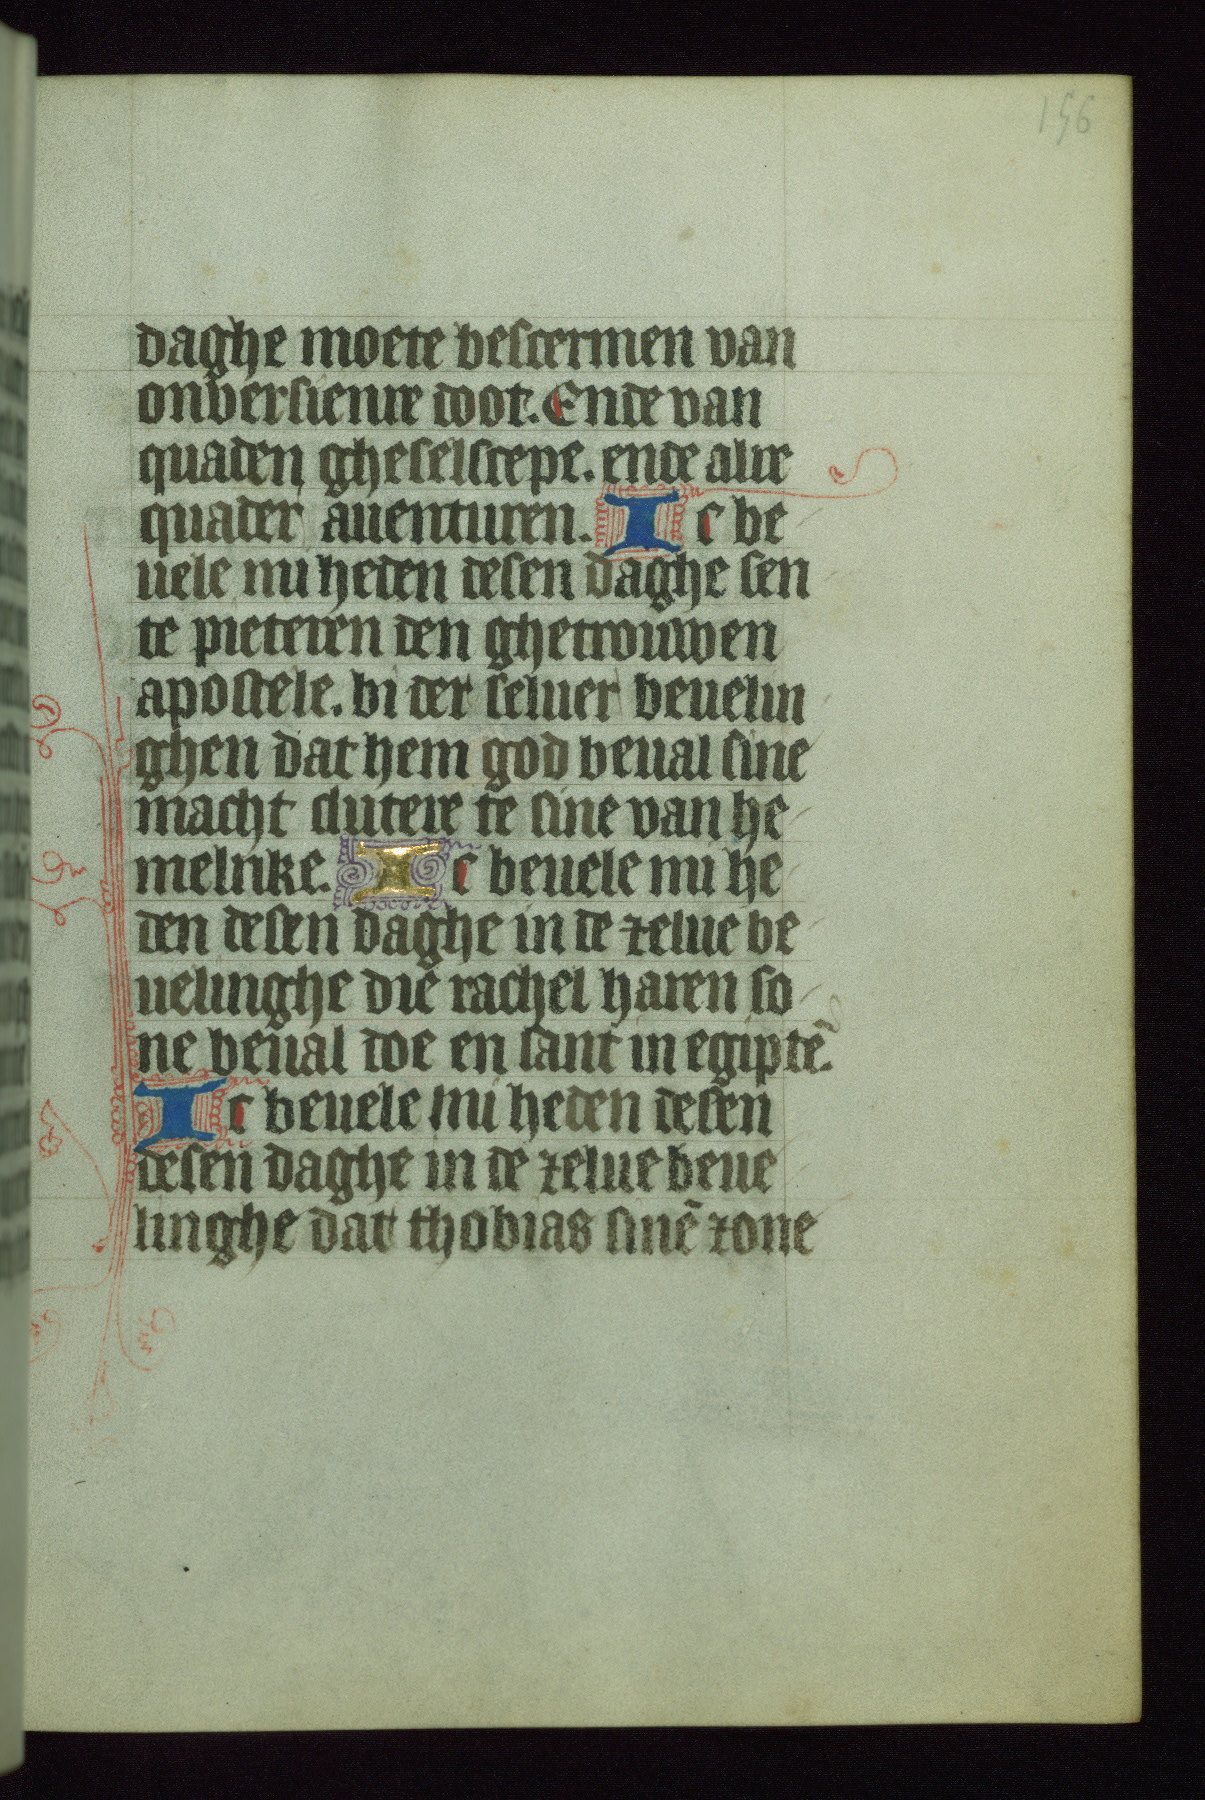 156
daghe moete bescermen van
onversienre doot. Ende van
quaden gheselscepe. ende alre
quader auenturen. Ic be
uele mi heden desen daghe sen
te pieteren den ghetrouwen
apostele. bi der seluer beuelin
ghen dat hem god beual sine
macht slutere te sine van he
melrike. Ic beuele mi he
den desen daghe in de zelue be
uelinghe die rachel haren so
ne beual doe en sant in egiptē.
Ic beuele mi heden desen
desen daghe in de zelue beue
linghe dat thobias sinē zone